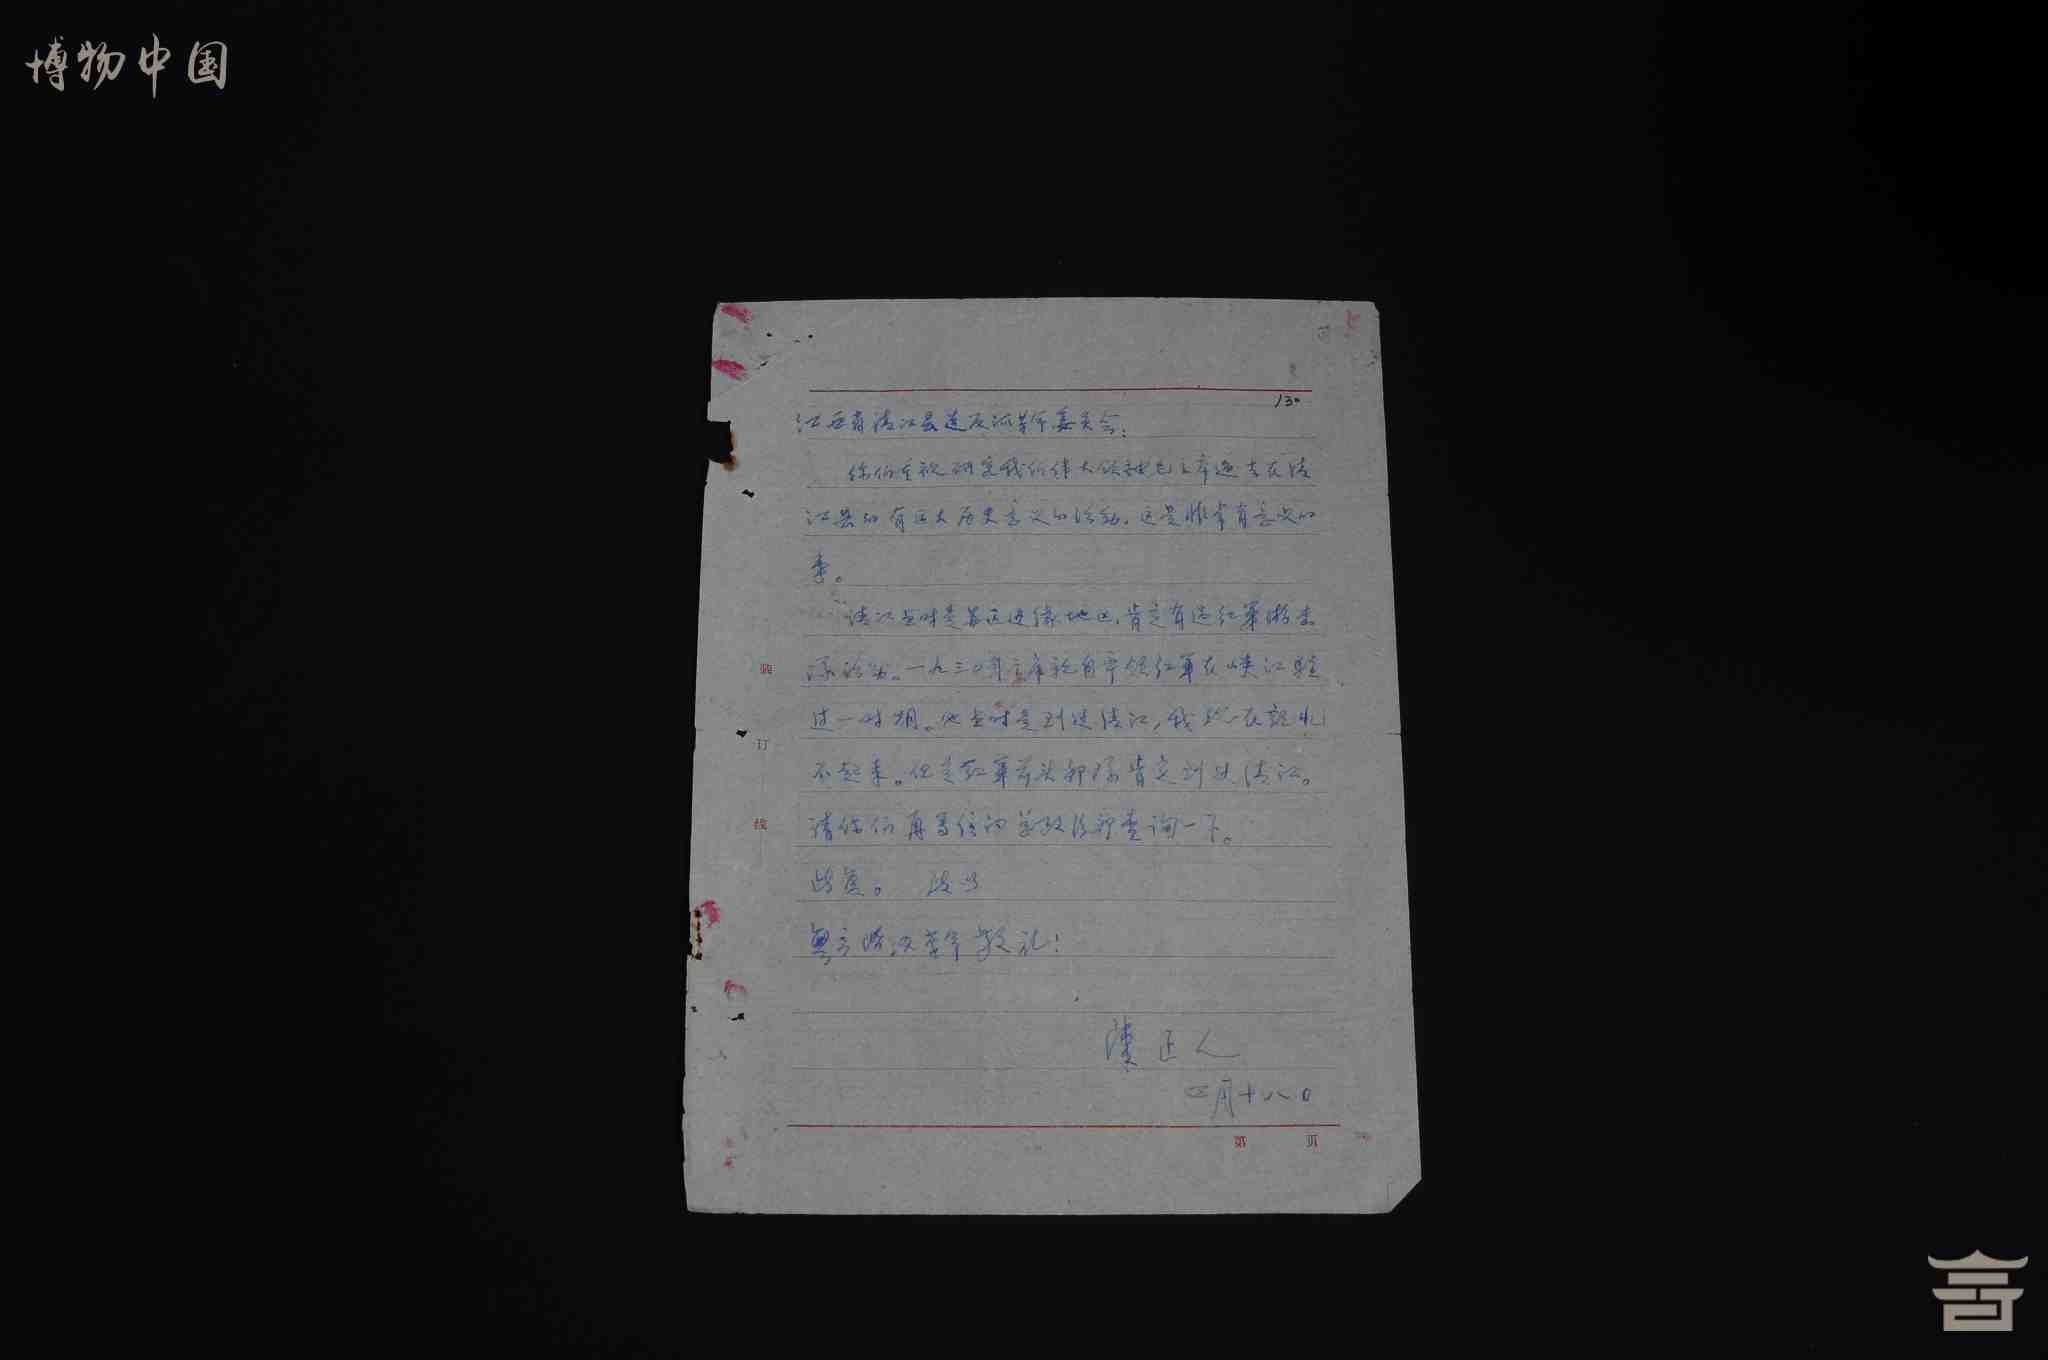 博物中国
130
江西省清江县造反派革命委员会:
你们重视研究我们伟大领袖毛主席过去在清
江县的有巨大历史意义的活动,这是非常有意义的
事。
清江当时是苏区边缘地区,肯定有过红军游击
队活动。一九三〇年主席亲自率领红军在峡江驻
过一时期。他当时是到过清江,我现在记忆
不起来。但是红军前头部队肯定到过清江。
请你们再写信向总政治部查询一下。
此复。 致以
无产阶级革命敬礼!
陈正人
三月十八日
装
订
线
第 页